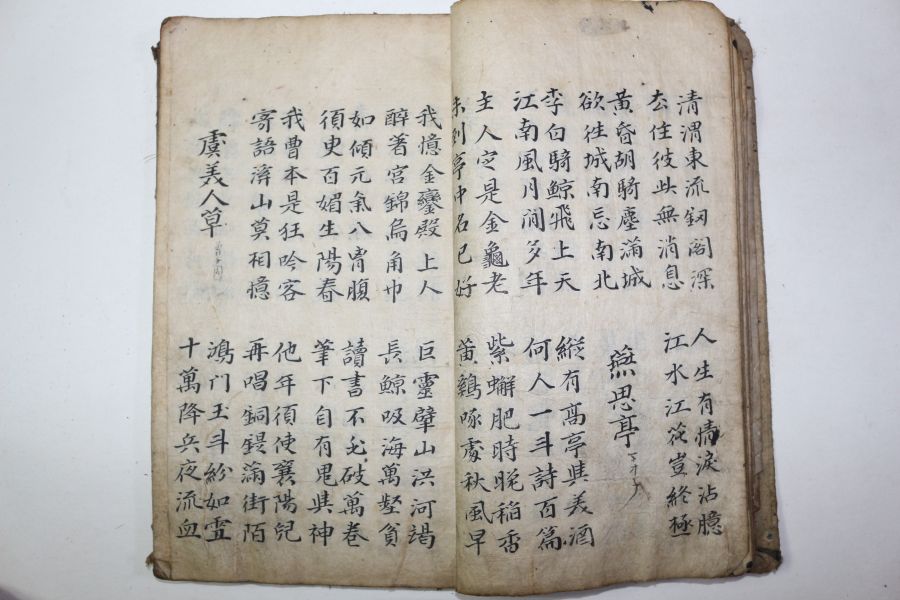 清渭東流釰阁深
去住彼此無消息
人生有情淚沾臆
江水江花豈終極
黃昏胡騎塵滿城
欲往城南忘南北
燕思亭
李白騎鯨飛上天
江南風月閒多年
縱有高亭與美酒
何人一斗詩百篇
主人定是金龜老
未到亭中名已好
紫蠏肥時晚稻香
黃鷄啄處秋風早
我憶金鑾殿上人
醉著宮錦烏角巾
巨靈擘山洪河竭
長鯨吸海萬壑貧
如傾元氣入胷腹
須臾百媚生陽春
讀書不必破萬卷
筆下自有鬼與神
我曹本是狂吟客
寄語溪山莫相憶
他年須使襄陽兒
再唱銅鍉滿街陌
虞美人草
鴻門玉斗紛如雪
十萬降兵夜流血